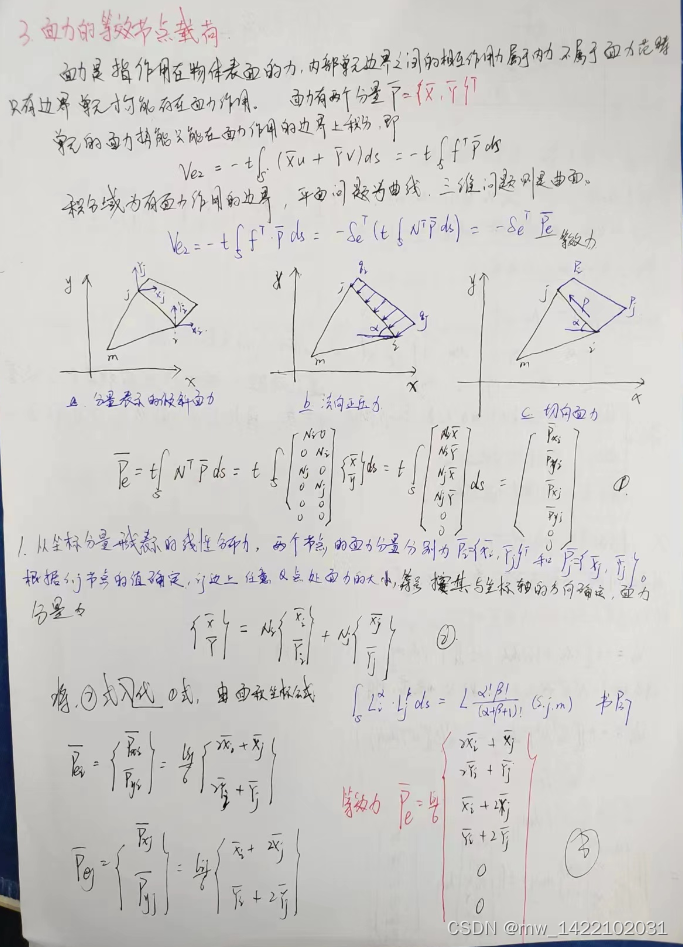 3. 面力的等效节点载荷
面力是指作用在物体表面的力,内部单元边界之间的相互作用力属于内力不属于面力范畴
只有边界单元才可能存在面力作用。 面力有两个分量 P̄={X̄, Ȳ}ᵀ
单元的面力势能只能在面力作用的边界上积分,即
Ve₂ = -t∫s (X̄u + Ȳv)ds = -t∫s fᵀP̄ds
积分域为有面力作用的边界,平面问题为曲线,三维问题则是曲面。
Ve₂ = -t∫s fᵀ·P̄ds = -δeᵀ(t∫s NᵀP̄ds) = -δeᵀ P̄e 等效力
y j Yj Xj Yi i Xi m x
y qi j qj α i m x
y Pi j P Pj α i m x
a. 分量表示的倾斜面力
b. 法向正压力
c. 切向面力
P̄e = t∫s NᵀP̄ds = t∫s [Ni 0; 0 Ni; Nj 0; 0 Nj; 0 0; 0 0] {X̄; Ȳ} ds = t∫s [NiX̄; NiȲ; NjX̄; NjȲ; 0; 0] ds = [P̄xi; P̄yi; P̄xj; P̄yj; 0; 0] ①
1. 从坐标分量形式表示的线性分布力,两个节点的面力分量分别为
根据i,j节点的值确定,ij边上任意 点处面力的大小, 其与坐标轴的方向确定,面力
分量为
{X̄; Ȳ} = Ni{X̄i; Ȳi} + Nj{X̄j; Ȳj} ②
将②式代入①式,由面积坐标公式 ∫s Liᵅ·Ljᵝ ds = L α!β!/(α+β+1)! (i.j.m)
P̄ei = {P̄xi; P̄yi} = Lij/6 {2X̄i + X̄j; 2Ȳi + Ȳj}
P̄ej = {P̄xj; P̄yj} = Lij/6 {X̄i + 2X̄j; Ȳi + 2Ȳj}
等效力 P̄e = Lij/6 {2X̄i + X̄j; 2Ȳi + Ȳj; X̄i + 2X̄j; Ȳi + 2Ȳj; 0; 0} ③
CSDN @mw_1422102031